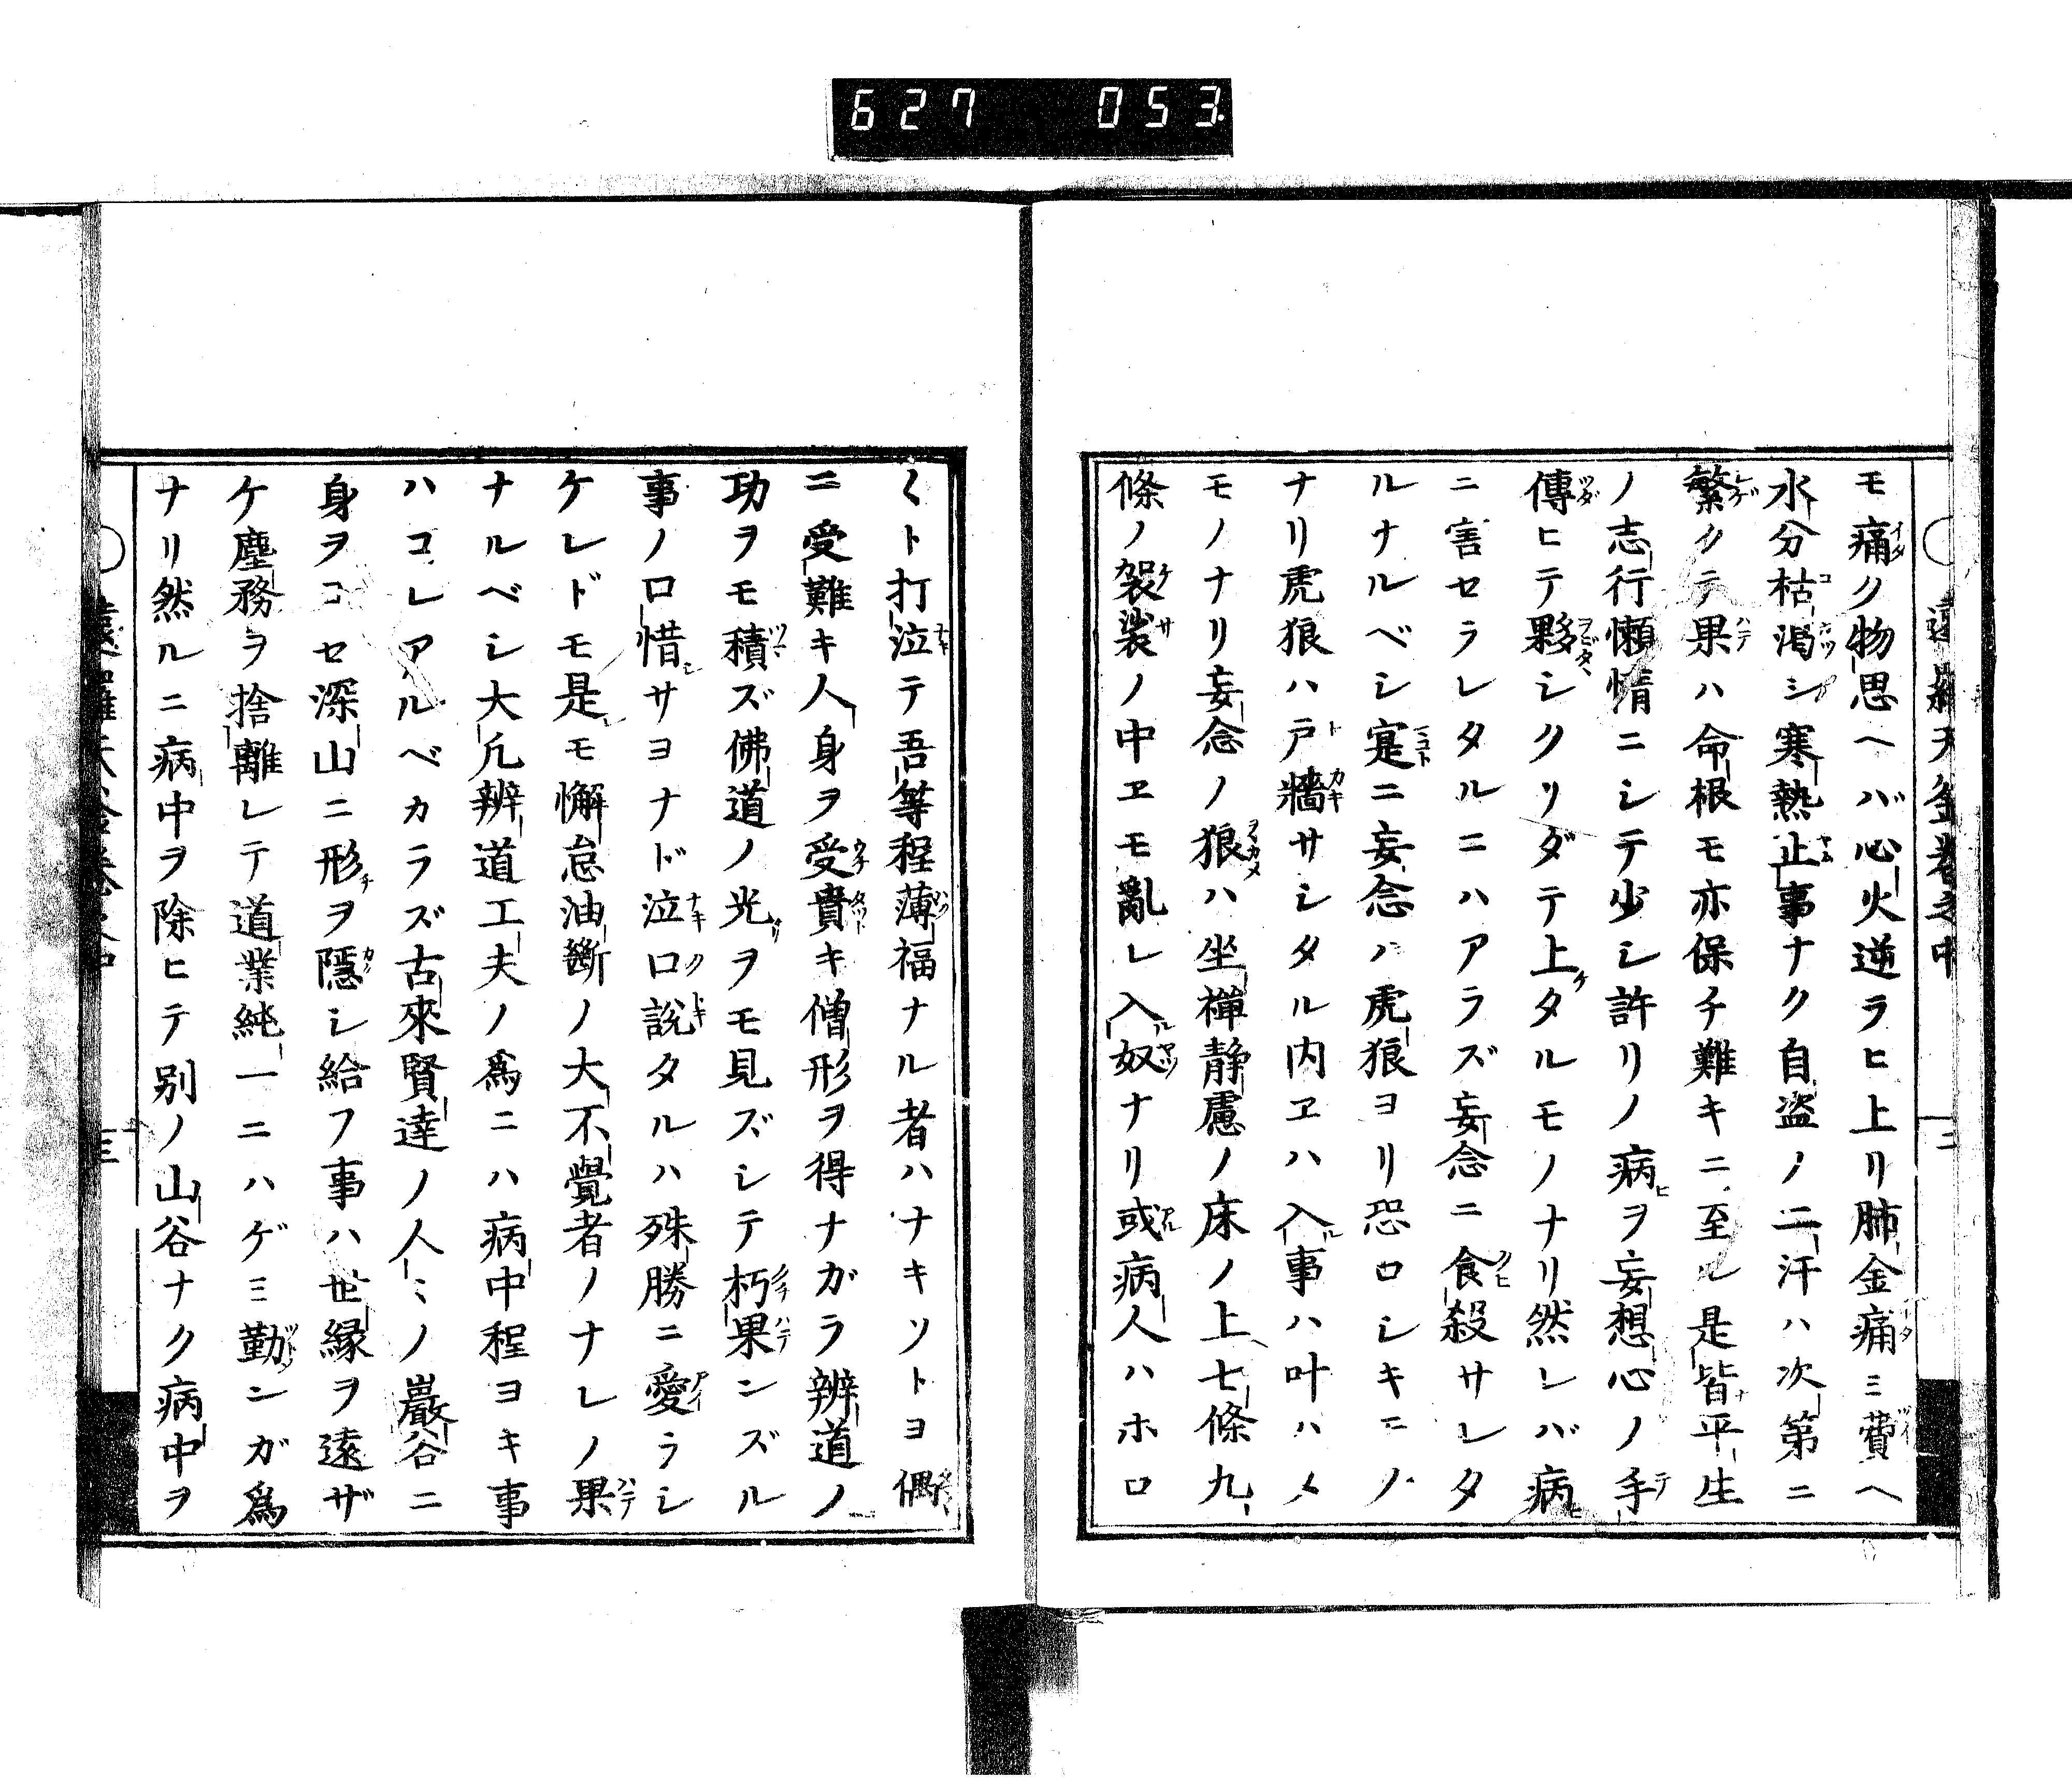 627 053
モ痛ク物思ヘバ心火逆ラヒ上リ肺金痛ミ費ヘ
水分枯渇シ寒熱止事ナク自盗ノ二汗ハ次第ニ
繁クテ果ハ命根モ亦保チ難キニ至ル是皆平生
ノ志行懶惰ニシテ少シ許リノ病ヲ妄想心ノ手
傳ヒテ夥シクリダテ上タルモノナリ然レバ病
ニ害セラレタルニハアラズ妄念ニ食殺サレタ
ルナルベシ寔ニ妄念ハ虎狼ヨリ恐ロシキニノ
ナリ虎狼ハ戸牆サシタル内ヱハ入事ハ叶ハメ
モノナリ妄念ノ狼ハ坐禪静慮ノ床ノ上七條九
條ノ袈裟ノ中ヱモ亂レ入奴ナリ或病人ハホロ
〱ト打泣テ吾等程薄福ナル者ハナキソトヨ偶
ニ受難キ人身ヲ受貴キ僧形ヲ得ナガラ辨道ノ
功ヲモ積ズ佛道ノ光ヲモ見ズシテ朽果ンズル
事ノ口惜サヨナド泣口説タルハ殊勝ニ愛ラシ
ケレドモ是モ懈怠油斷ノ大不覺者ノナレノ果
ナルベシ大凢辨道工夫ノ爲ニハ病中程ヨキ事
ハコレアルベカラズ古來賢達ノ人〻ノ巖谷ニ
身ヲコセ深山ニ形ヲ隱シ給フ事ハ世縁ヲ遠ザ
ケ塵務ヲ捨離レテ道業純一ニハゲミ勤ンガ爲
ナリ然ルニ病中ヲ除ヒテ別ノ山谷ナク病中ヲ